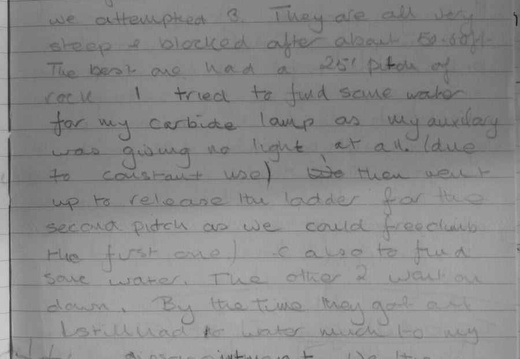 we attempted 3. They are all very
steep & blocked after about 50-60ft.
The best one had a 25' pitch of
rock. I tried to find some water
for my carbide lamp as my auxilary
was giving no light at all. (due
to constant use) then went
up to release the ladder for the
second pitch as we could freeclimb
the first one) & also to find
some water. The other 2 went on
down. By the time they got out
I still had no water much to my